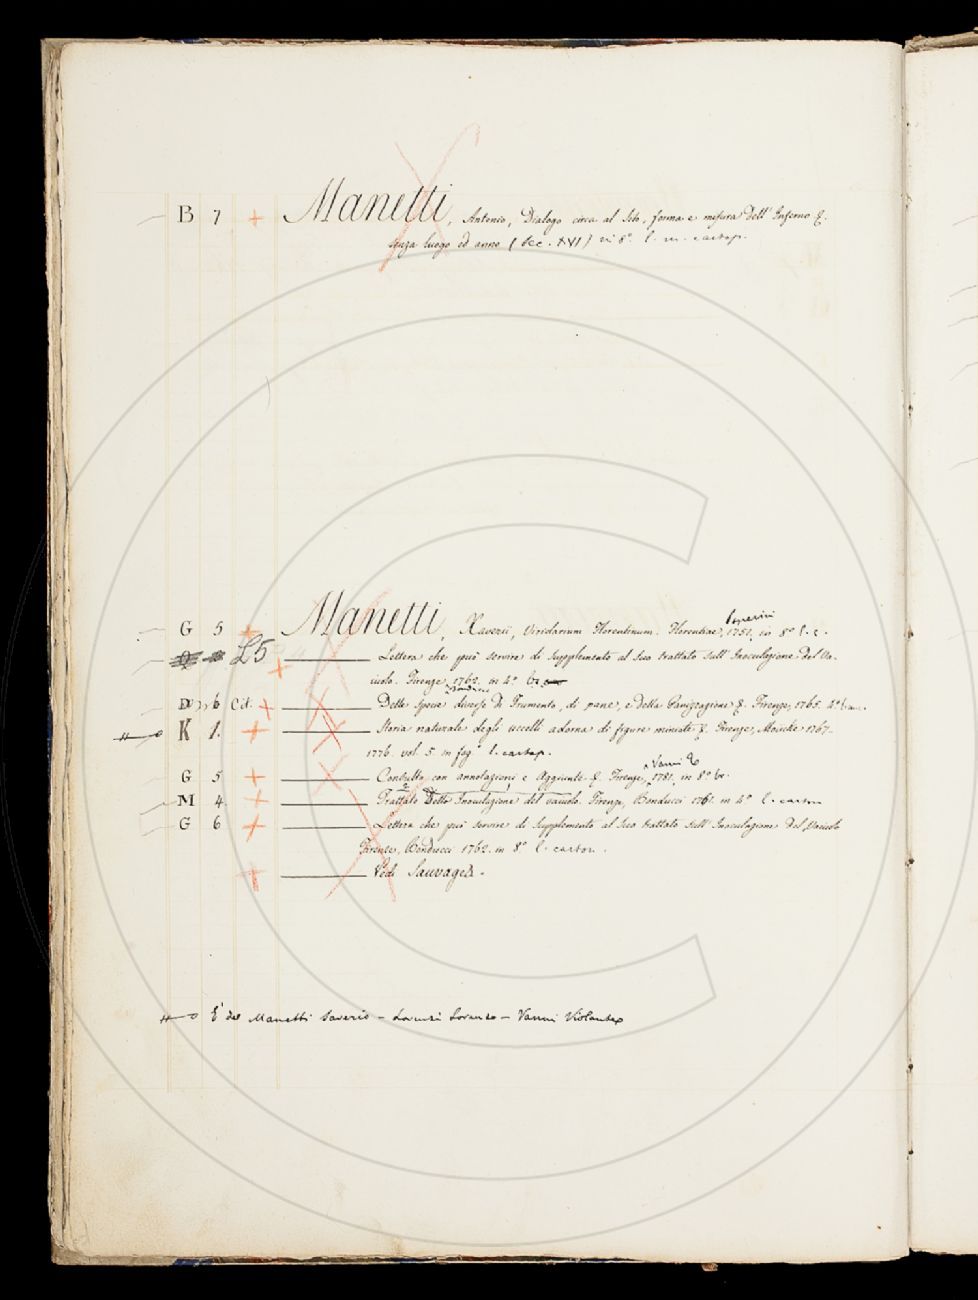 B 7 + Manetti, Antonio, Dialogo circa al Sito, forma e misura dell' Inferno &.
senza luogo ed anno (Sec. XVI) in 8° l. m. cartap.
Imperiri
G 5 + Manetti, Xaverii, Viridarium Florentinum. Florentiae, 1751. in 8° l. c.
L 5 + Lettera che può servire di Supplemento al suo trattato sull' Inoculazione del Va-
iuolo. Firenze, 1762. in 4° br
Bonducci
D 6 Cit. + Delle Specie diverse di Frumento, di pane, e della Panizzazione &. Firenze, 1765. 4°
#—o K 1. + Storia naturale degli uccelli adorna di figure miniate &. Firenze, Moücke 1767.
1776. vol. 5. in fog° l. cartap.
Vanni
G 5 + Consulto con annotazioni e Aggiunte &. Firenze, 1781. in 8° br.
M 4 + Trattato Della Inoculazione del vaiuolo. Firenze, Bonducci 1761. in 4° l. carton
G 6 + Lettera che può servire di Supplemento al suo trattato sull' Inoculazione del Vaiuolo
Firenze, Bonducci 1762. in 8° l. carton.
+ Vedi Sauvages.
#—o E' del Manetti Saverio – Lorenzi Lorenzo – Vanni Violante